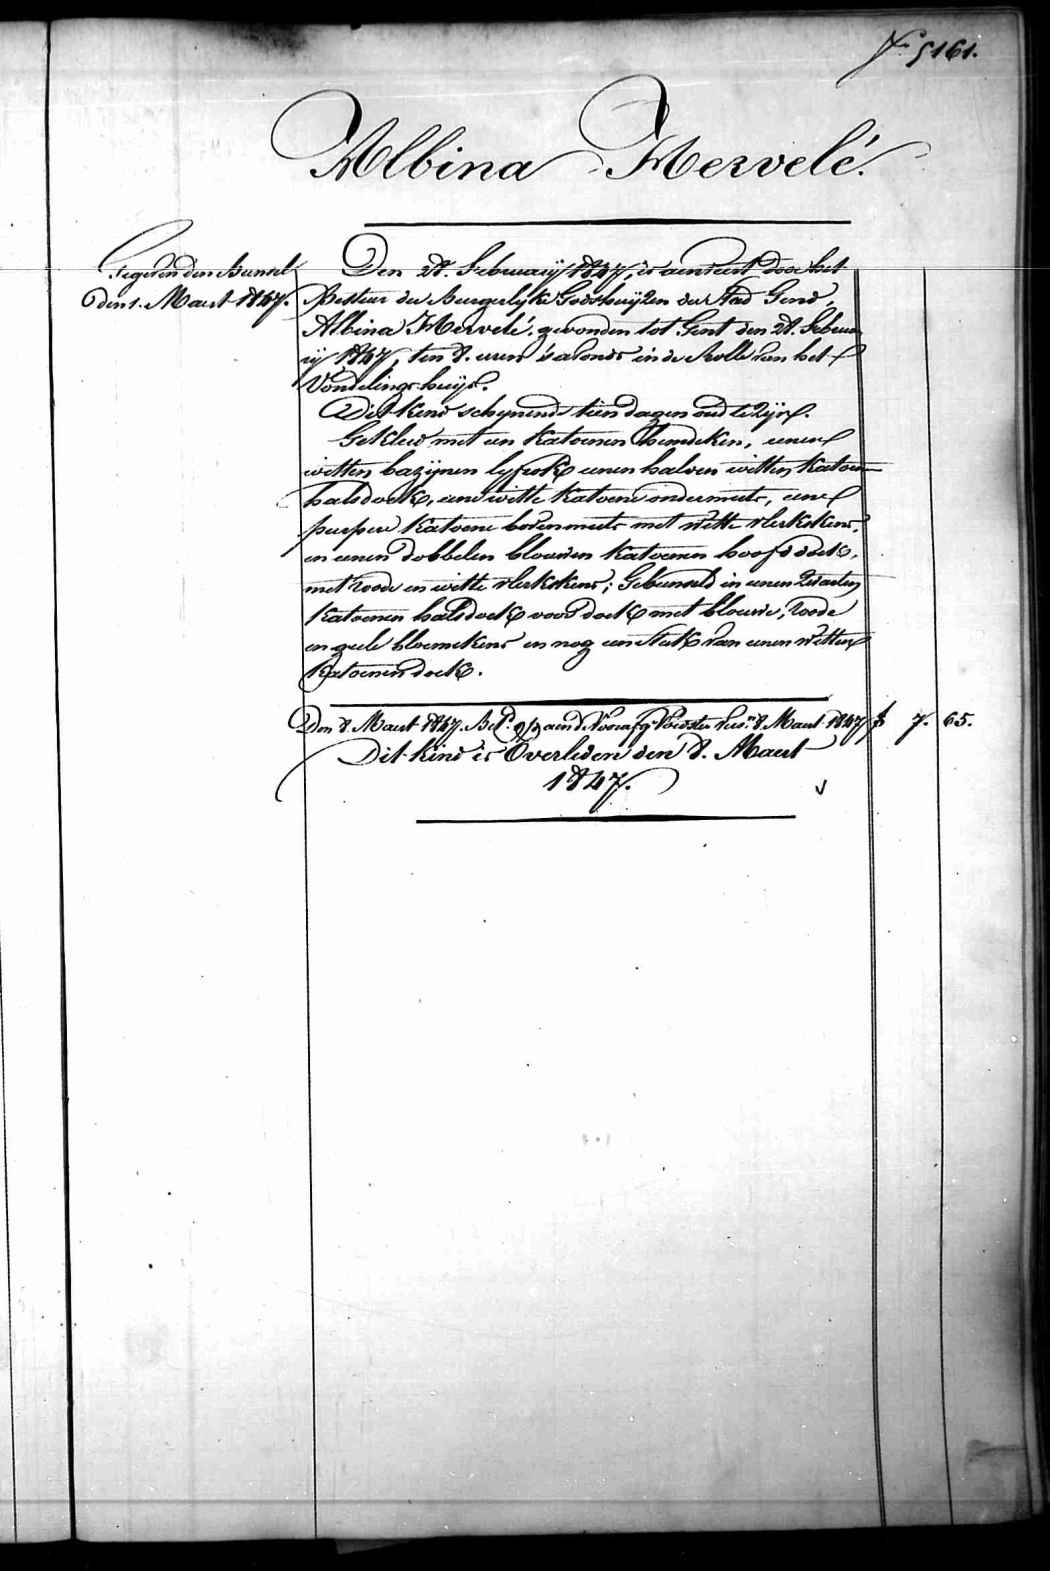 F.° 5161.
Albina Mervelé.
Gegeven den Bunsel
den 1. Maert 1847.
Den 28. February 1847, is aenveert door het
Bestuer der Burgerlyke Godshuijzen der Stad Gend,
Albina Mervelé, gevonden tot Gent den 28. Februa-
ry 1847, ten 8. uren 's avonds in de Rolle van het
Vondelings huijs.
Dit kind schynende tien dagen oud te zyn.
Gekleed met een katoenen hemdeken, eenen
witten bazynen lyfrok eenen halven witten katoenen
halsdoek, eene witte katoene ondermuts, eene
purpere katoene bovenmuts met witte vlekskens,
en eenen dobbelen blauwen katoenen hoofddoek,
met roode en witte vlekskens; Gebunseld in eenen zwarten
katoenen halsdoek voor doek met blauwe, roode
en geele bloemekens en nog een stuk van eenen witten
katoenen doek.
Den 8. Maert 1847. Maert 1847 f 7. 65.
Dit kind is Overleden den 8. Maert
1847.